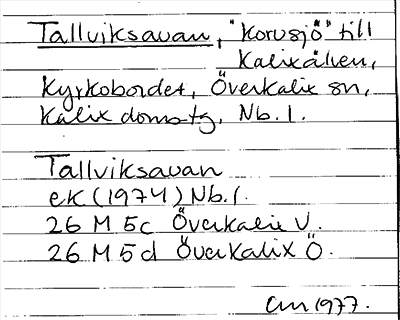 Tallviksavan, "korvsjö" till
Kalixälven,
Kyrkobordet, Överkalix sn,
Kalix doms-tg, Nb. l.
Tallviksavan
ek (1974) Nb. l.
26 M 5c Överkalix V.
26 M 5d Överkalix Ö.
1977.